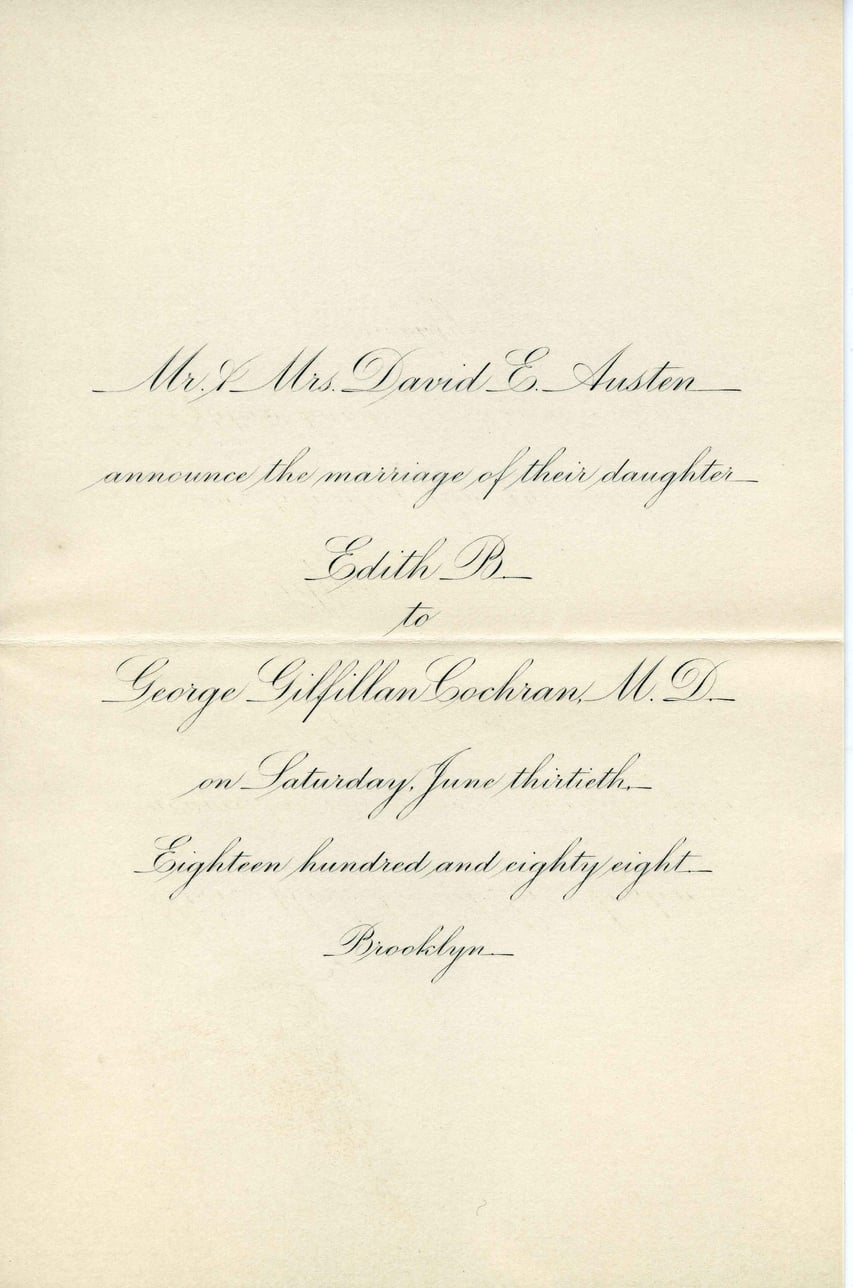 Mr. & Mrs. David E. Austen
announce the marriage of their daughter
Edith B.
to
George Gilfillan Cochran, M. D.
on Saturday, June thirtieth,
Eighteen hundred and eighty eight.
Brooklyn.